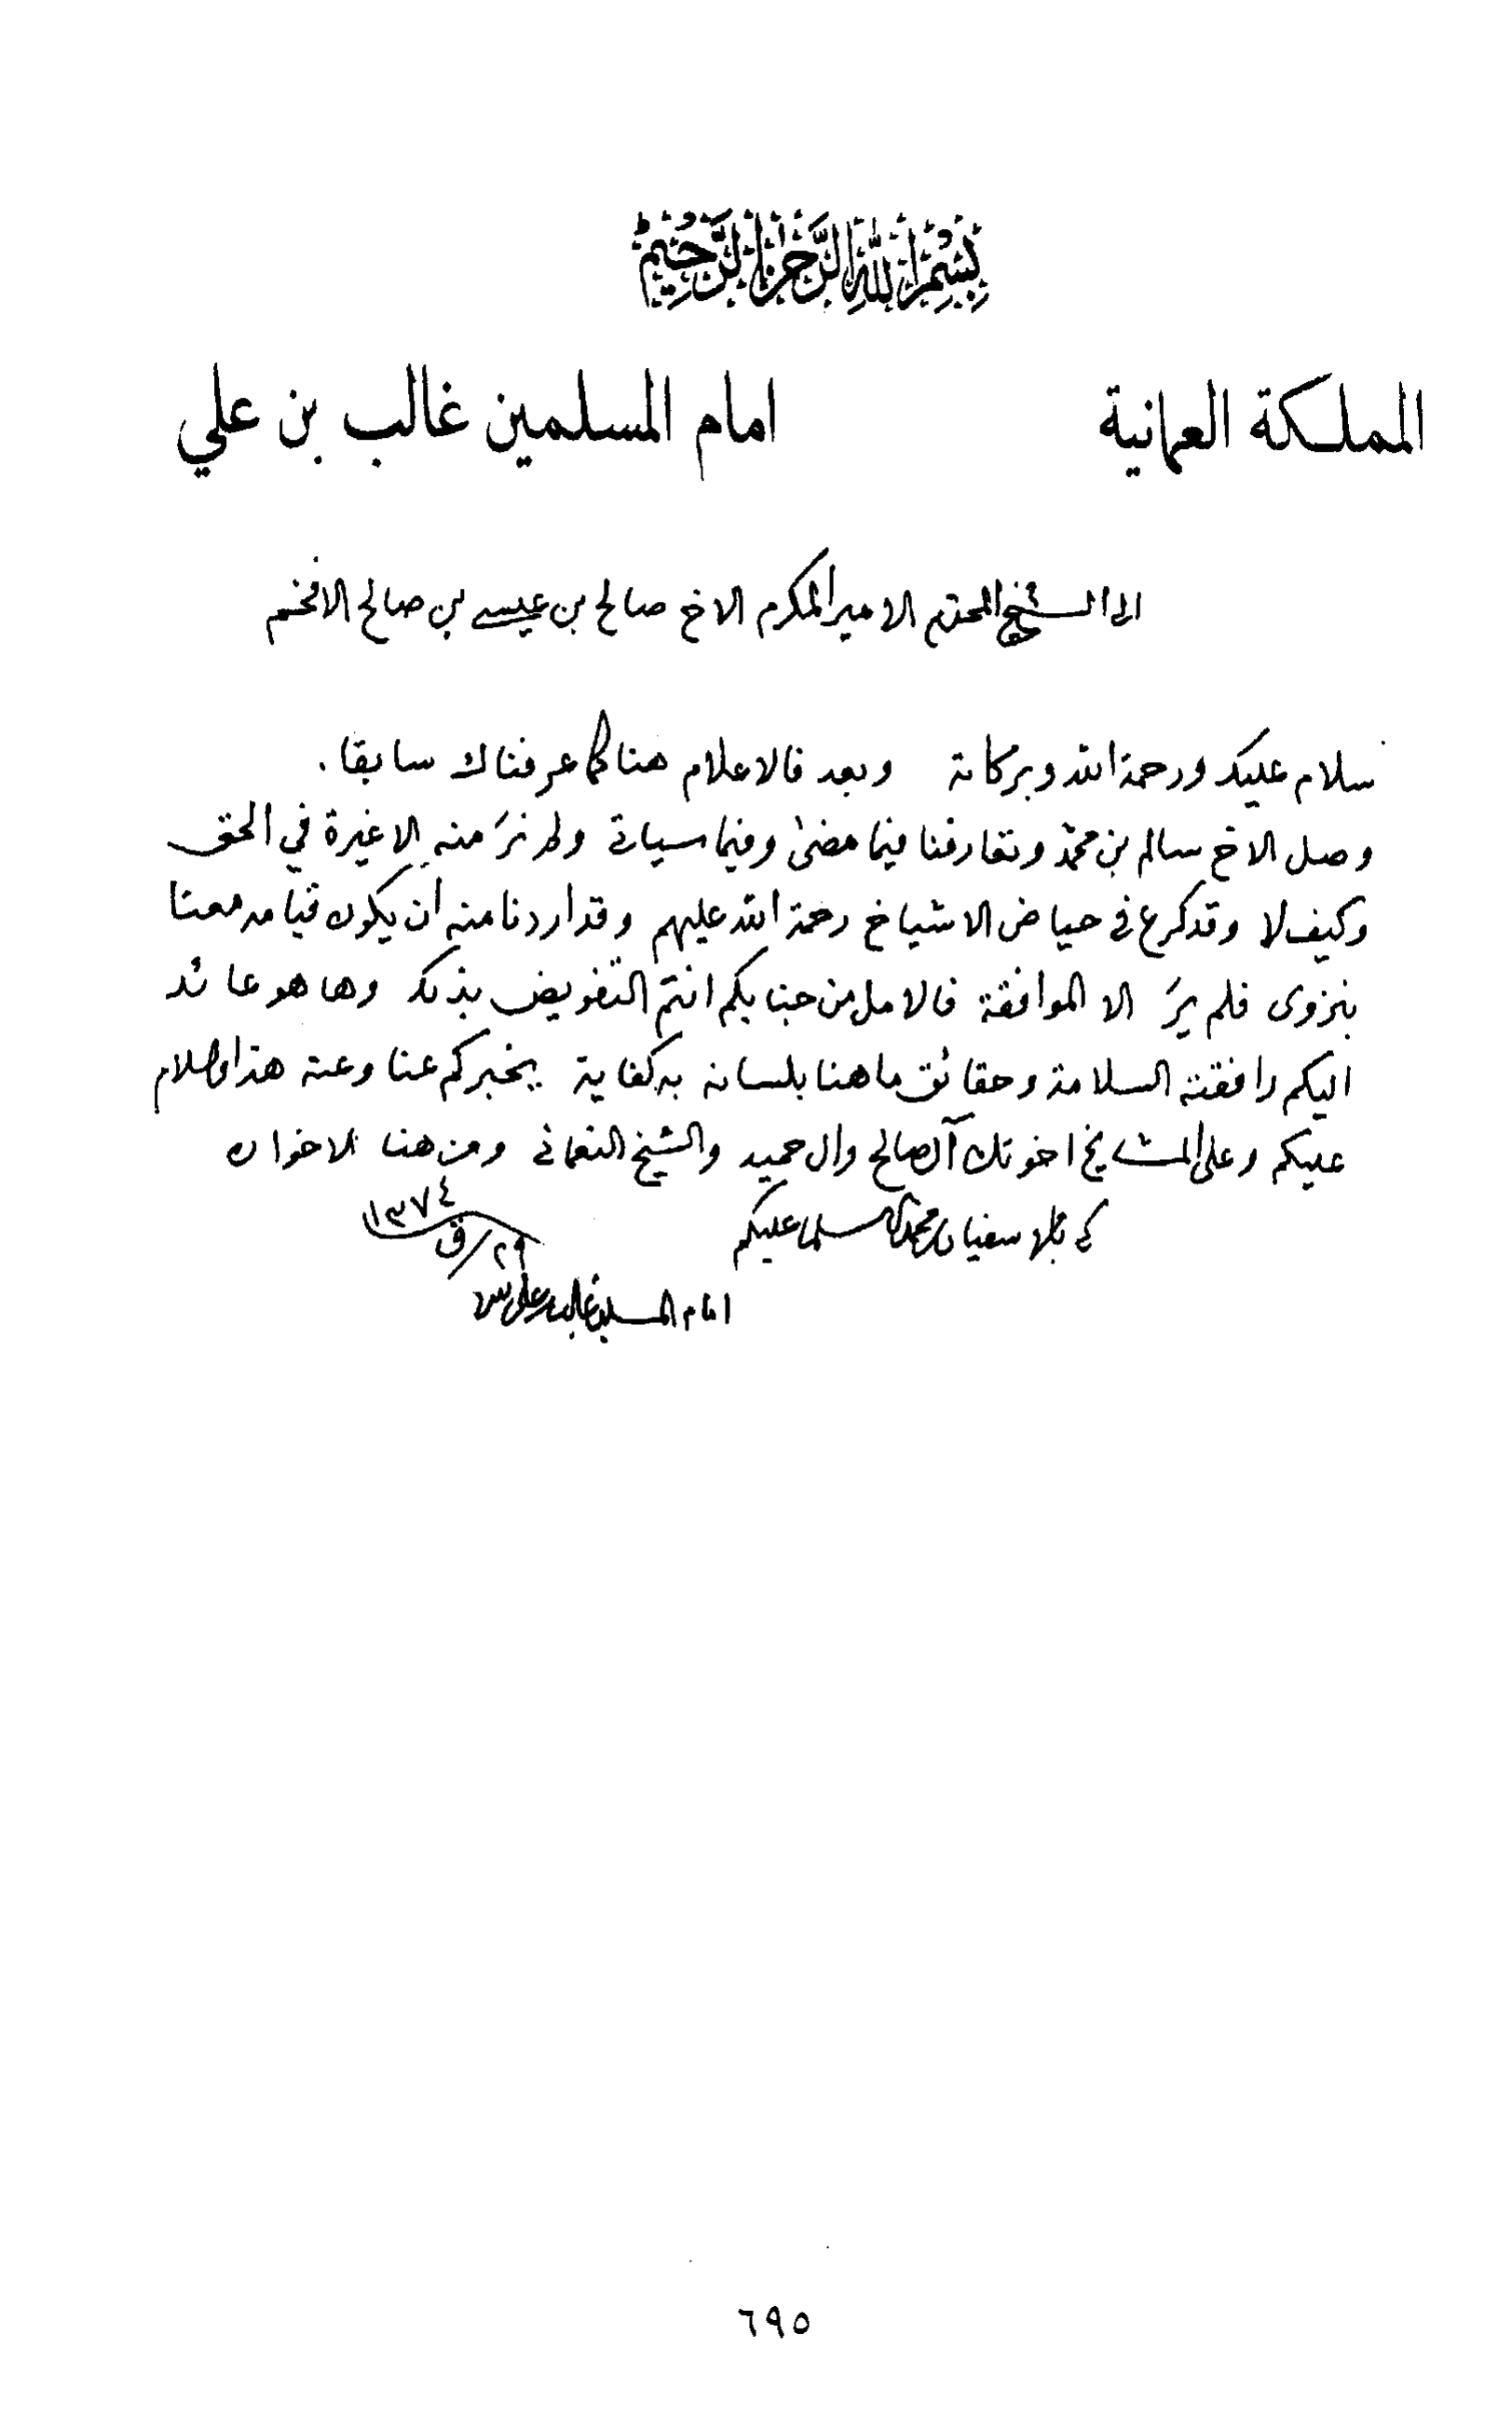 بسم الله الرحمن الرحيم
المملكة العمانية
امام المسلمين غالب بن علي
الى الشيخ المحترم الامير المكرم الاخ صالح بن عيسى بن صالح الافخم
سلام عليك ورحمة الله وبركاته وبعد فالاعلام هنا كما عرفناك سابقا.
وصل الاخ سالم بن محمد وتعارفنا فيما مضى وفيما سيأتي ولم نرَ منه الا غيرة في الحق
وكيف لا وقد كرع في حياض الاشياخ رحمة الله عليهم وقد اردنا منه ان يكون قيامه معنا
بنزوى فلم يرَ الا الموافقة فالامل من جنابكم انتم التفويض بذلك وها هو عائد
اليكم رافقته السلامة وحقائق ما هنا بلسانه به كفاية يخبركم عنا وعنه هذا والسلام
عليكم وعلى المشايخ اخوتك آل صالح وال حميد والشيخ النعماني ومن هنا الاخوان
سفيان بن محمد مسلما عليكم
٢٩/ق ١٣٧٤
امام المسلمين غالب بن علي
٦٩٥